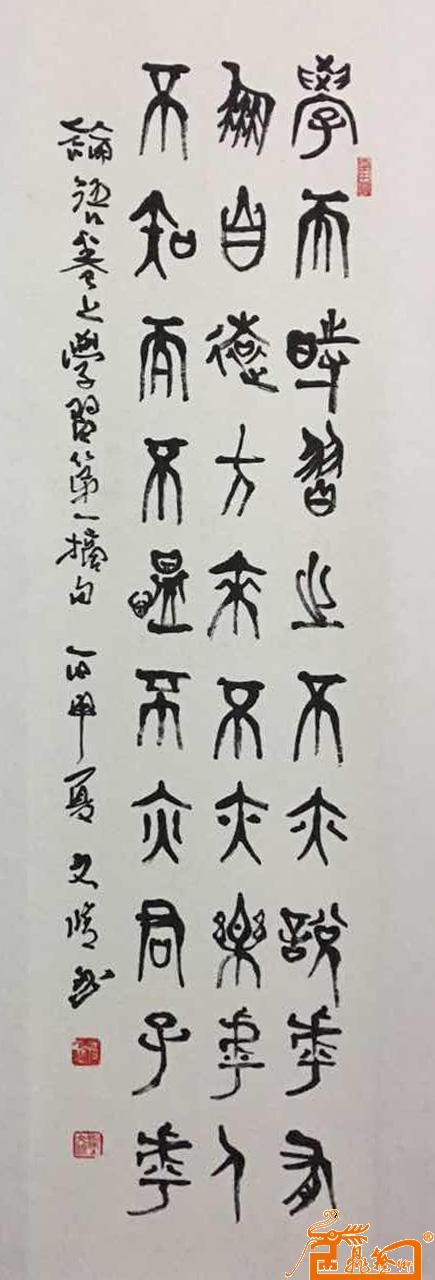 學而時習之不亦說乎有
朋自遠方來不亦樂乎人
不知而不慍不亦君子乎
論語卷之學習第一摘句 丙申夏 文